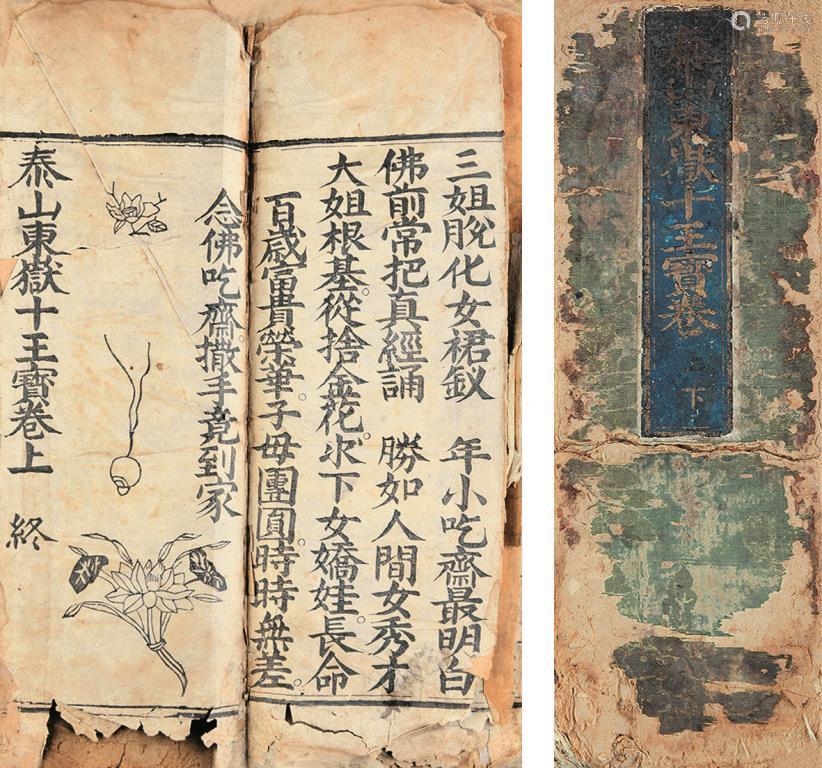 三姐脫化女裙釵　年小吃齋最明白
佛前常把真經誦　勝如人間女秀才
大姐根基。從捨金花。氷下女嬌娃。長命
百歲富貴榮華。子母團圓。時時無差。
念佛吃齋。撒手竟到家
泰山東嶽十王寶卷上　終
泰山東嶽十王寶卷 上下